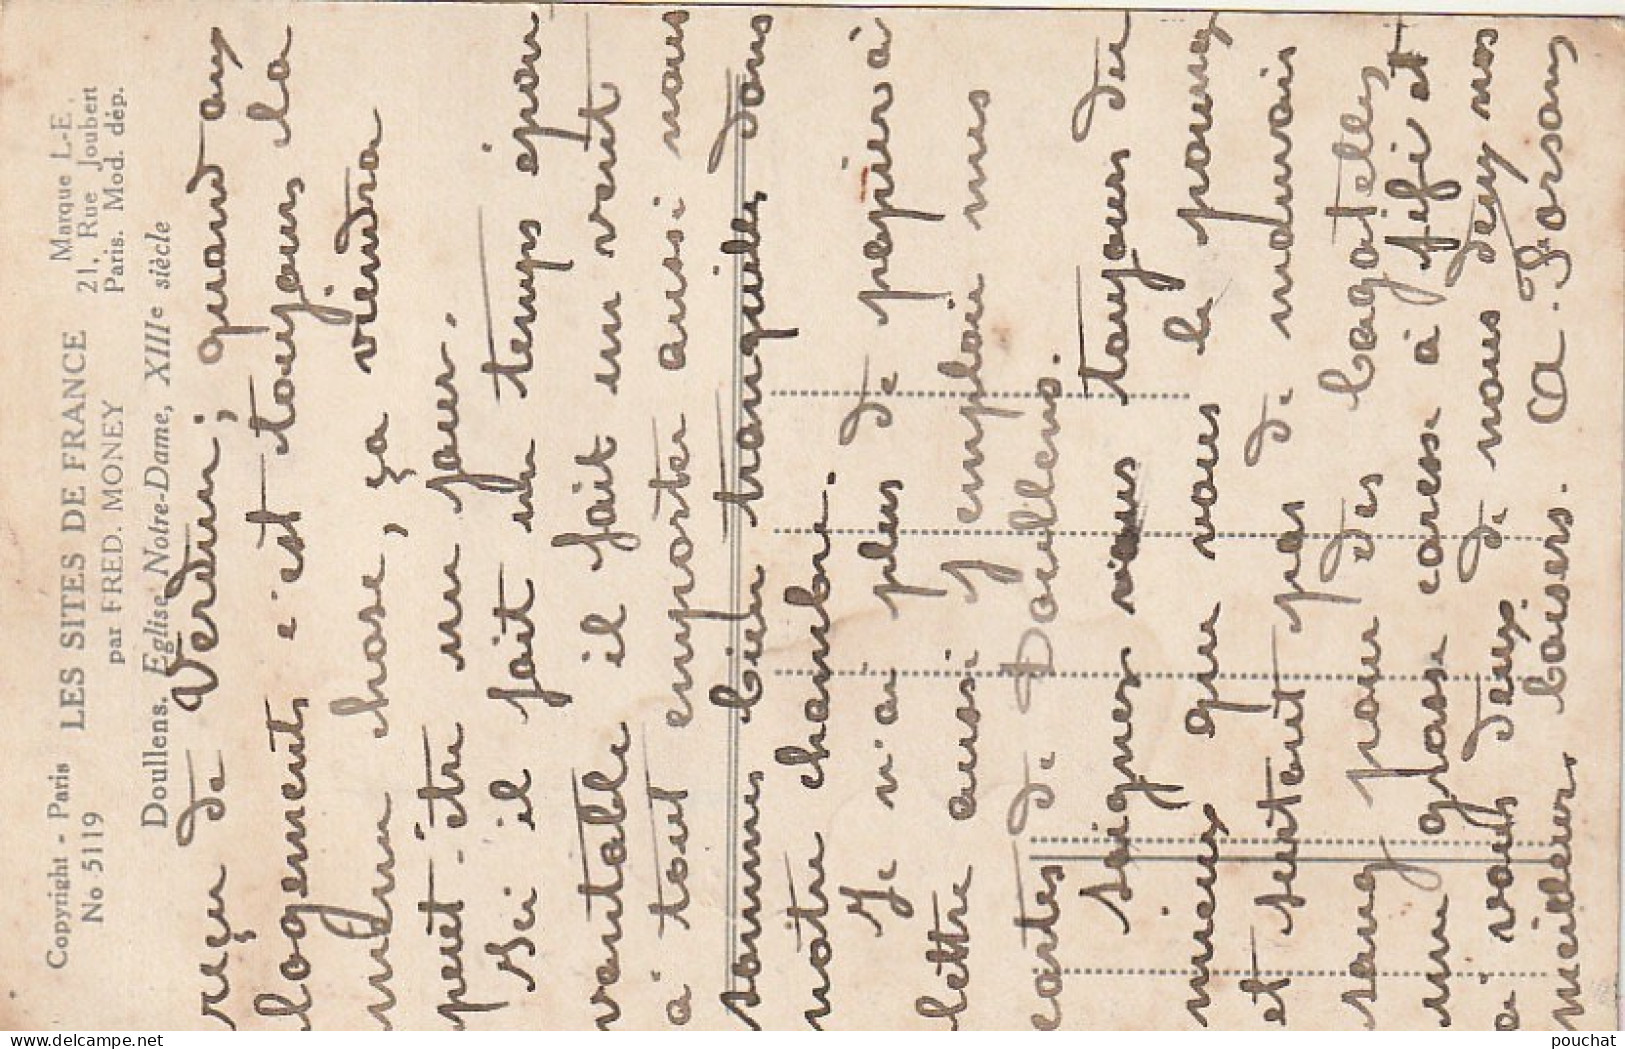 Copyright - Paris LES SITES DE FRANCE Marque L-E.
No 5119 par FRED. MONEY 21, Rue Joubert
Paris. Mod. dép.
Doullens. Eglise Notre-Dame, XIIIe siècle
reçu de Verdun; quand aux
logements c'est toujours la
même chose, ça viendra
peut-être un jour.
Ici il fait un temps épou
vantable il fait un vent
à tout emporter aussi nous
sommes bien tranquilles dans
notre chambre.
Je n'ai plus de papier à
lettre aussi j'emploie mes
cartes de Doullens.
Soignes vous toujours du
mieux que vous le pouvez
et surtout pas de mauvais
sang pour des bagatelles
une grosse caresse à Fifi et
à vous deux de nous deux nos
meilleurs baisers. A. Forsans
pouchat